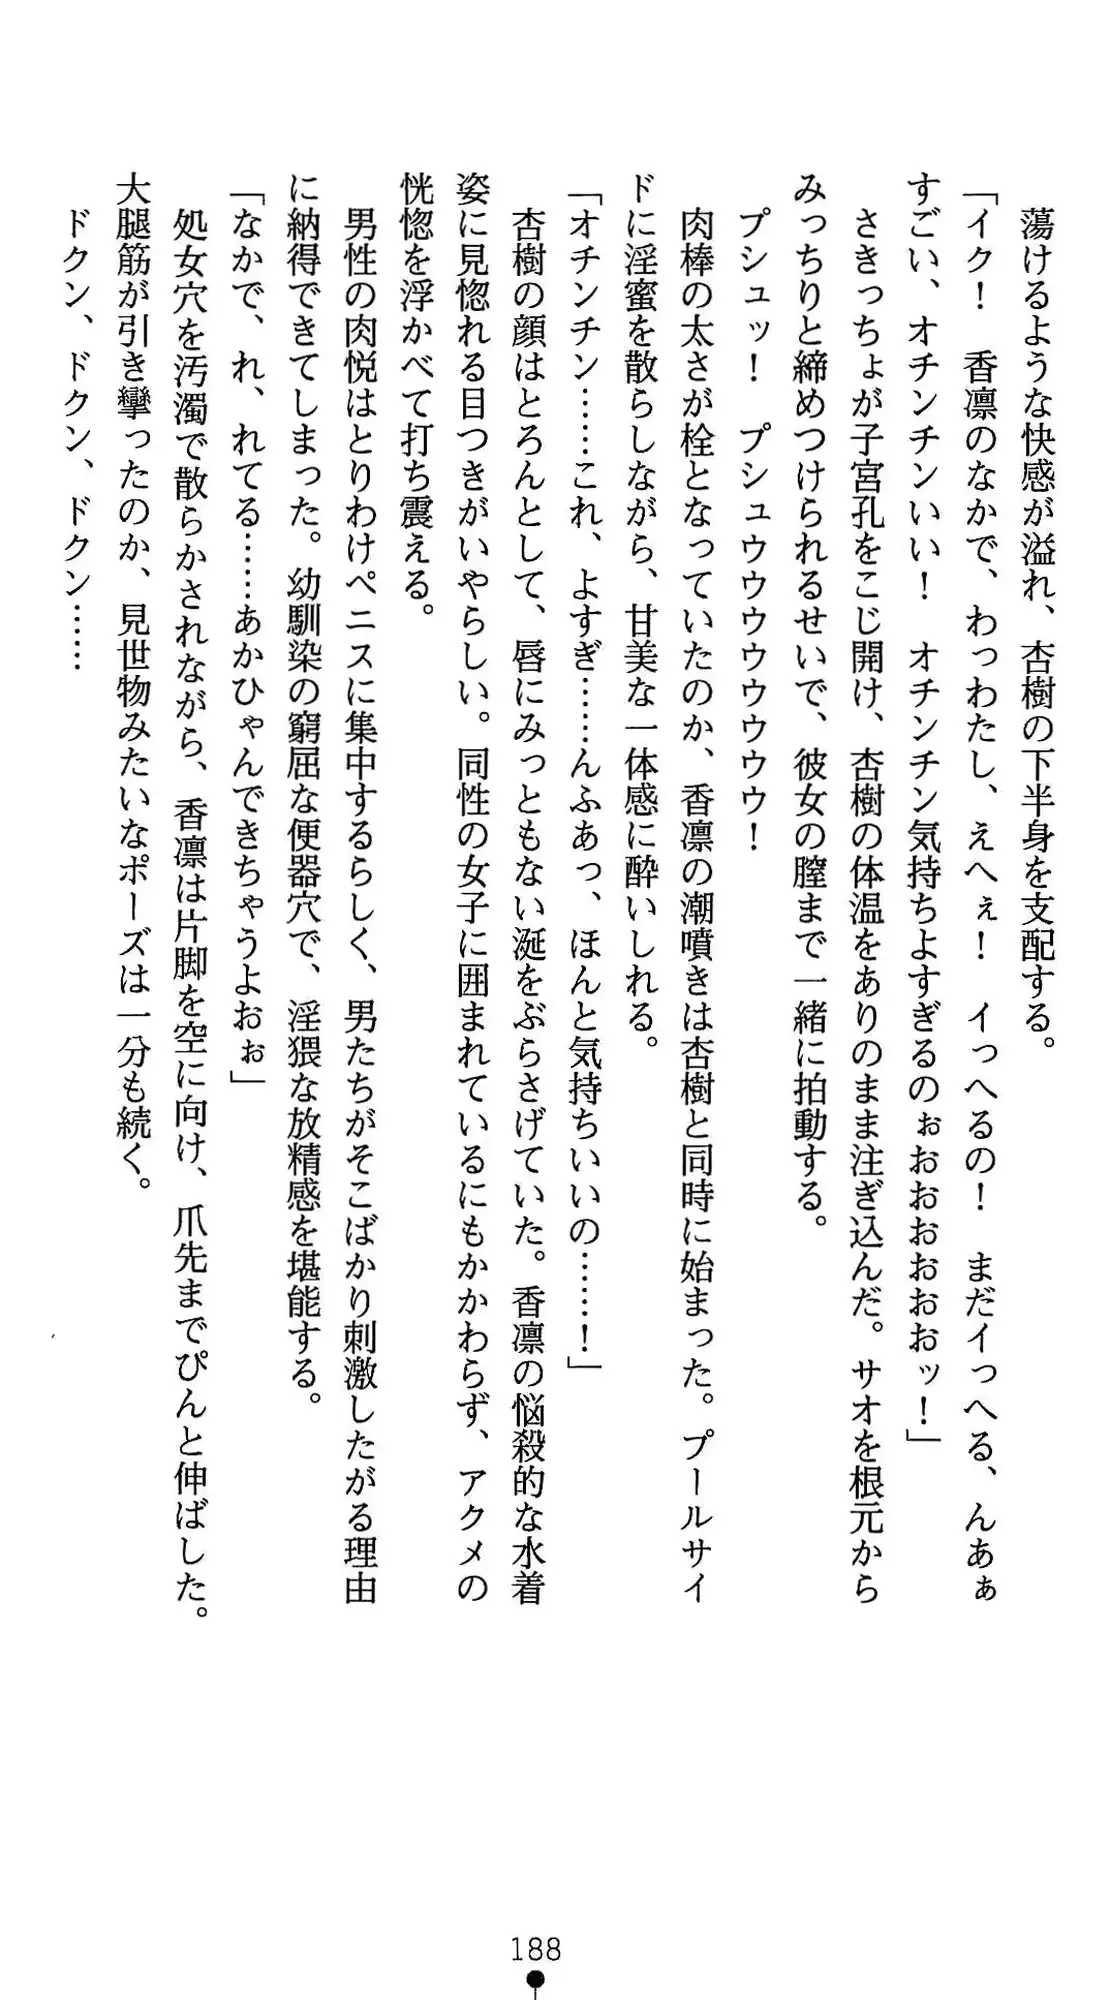 蕩けるような快感が溢れ、杏樹の下半身を支配する。
「イク！　香凛のなかで、わっわたし、えへぇ！　イっへるの！　まだイっへる、んあぁ
すごい、オチンチンいい！　オチンチン気持ちよすぎるのぉぉおおおおおッ！」
さきっちょが子宮孔をこじ開け、杏樹の体温をありのまま注ぎ込んだ。サオを根元から
みっちりと締めつけられるせいで、彼女の膣まで一緒に拍動する。
プシュッ！　プシュウウウウウウウ！
肉棒の太さが栓となっていたのか、香凛の潮噴きは杏樹と同時に始まった。プールサイ
ドに淫蜜を散らしながら、甘美な一体感に酔いしれる。
「オチンチン……これ、よすぎ……んふあっ、ほんと気持ちいいの……！」
杏樹の顔はとろんとして、唇にみっともない涎をぶらさげていた。香凛の悩殺的な水着
姿に見惚れる目つきがいやらしい。同性の女子に囲まれているにもかかわらず、アクメの
恍惚を浮かべて打ち震える。
男性の肉悦はとりわけペニスに集中するらしく、男たちがそこばかり刺激したがる理由
に納得できてしまった。幼馴染の窮屈な便器穴で、淫猥な放精感を堪能する。
「なかで、れ、れてる……あかひゃんできちゃうよおぉ」
処女穴を汚濁で散らかされながら、香凛は片脚を空に向け、爪先までぴんと伸ばした。
大腿筋が引き攣ったのか、見世物みたいなポーズは一分も続く。
ドクン、ドクン、ドクン……
188